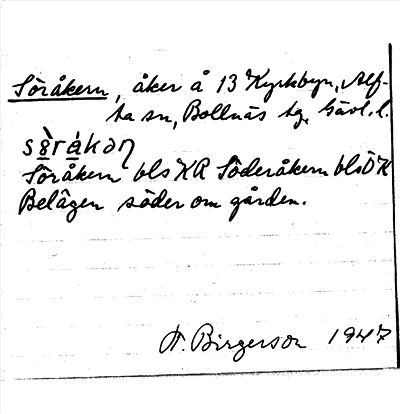 Söråkern, åker å 13 Kyrkbyn, Alf-
ta sn, Bollnäs tg, Gävl. l.
Söråkern bls HR Söderåkern bls ÖK
Belägen söder om gården.
H. Birgerson 1947